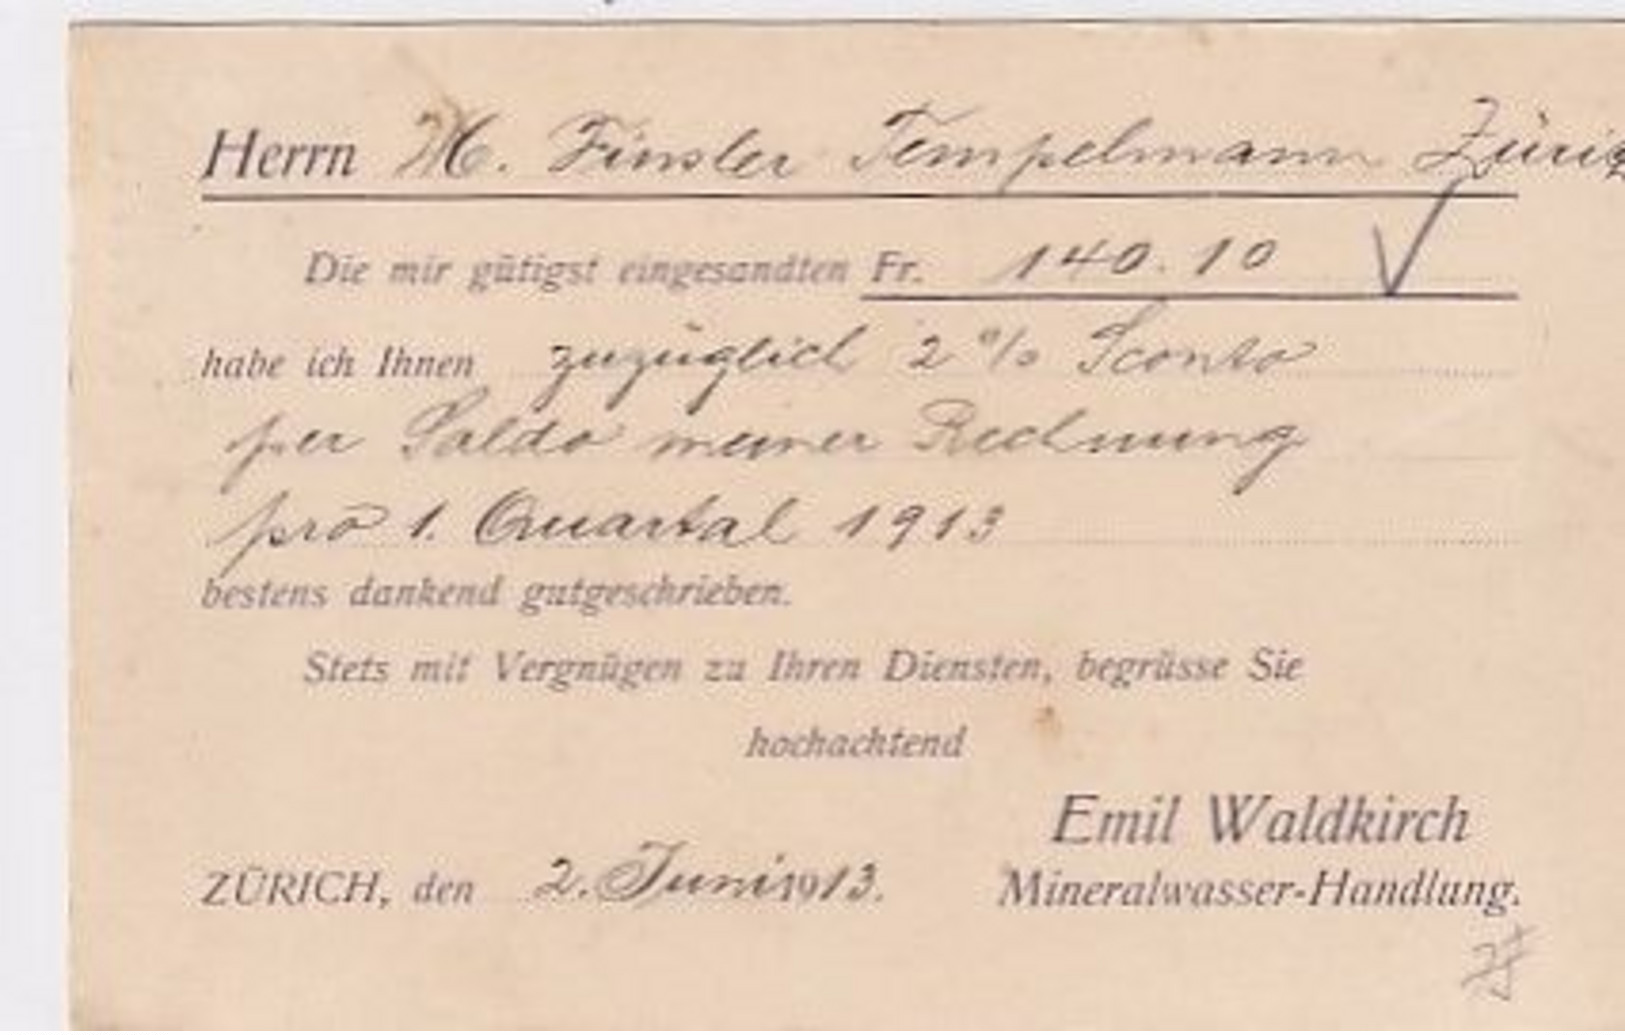 Herrn H. Finsler Tempelmann Züri
Die mir gütigst eingesandten Fr. 140.10
habe ich Ihnen zuzüglich 2 % Sconto
per Saldo meiner Rechnung
pro 1. Quartal 1913
bestens dankend gutgeschrieben.
Stets mit Vergnügen zu Ihren Diensten, begrüsse Sie
hochachtend
Emil Waldkirch
ZÜRICH, den 2. Juni 1913. Mineralwasser-Handlung.